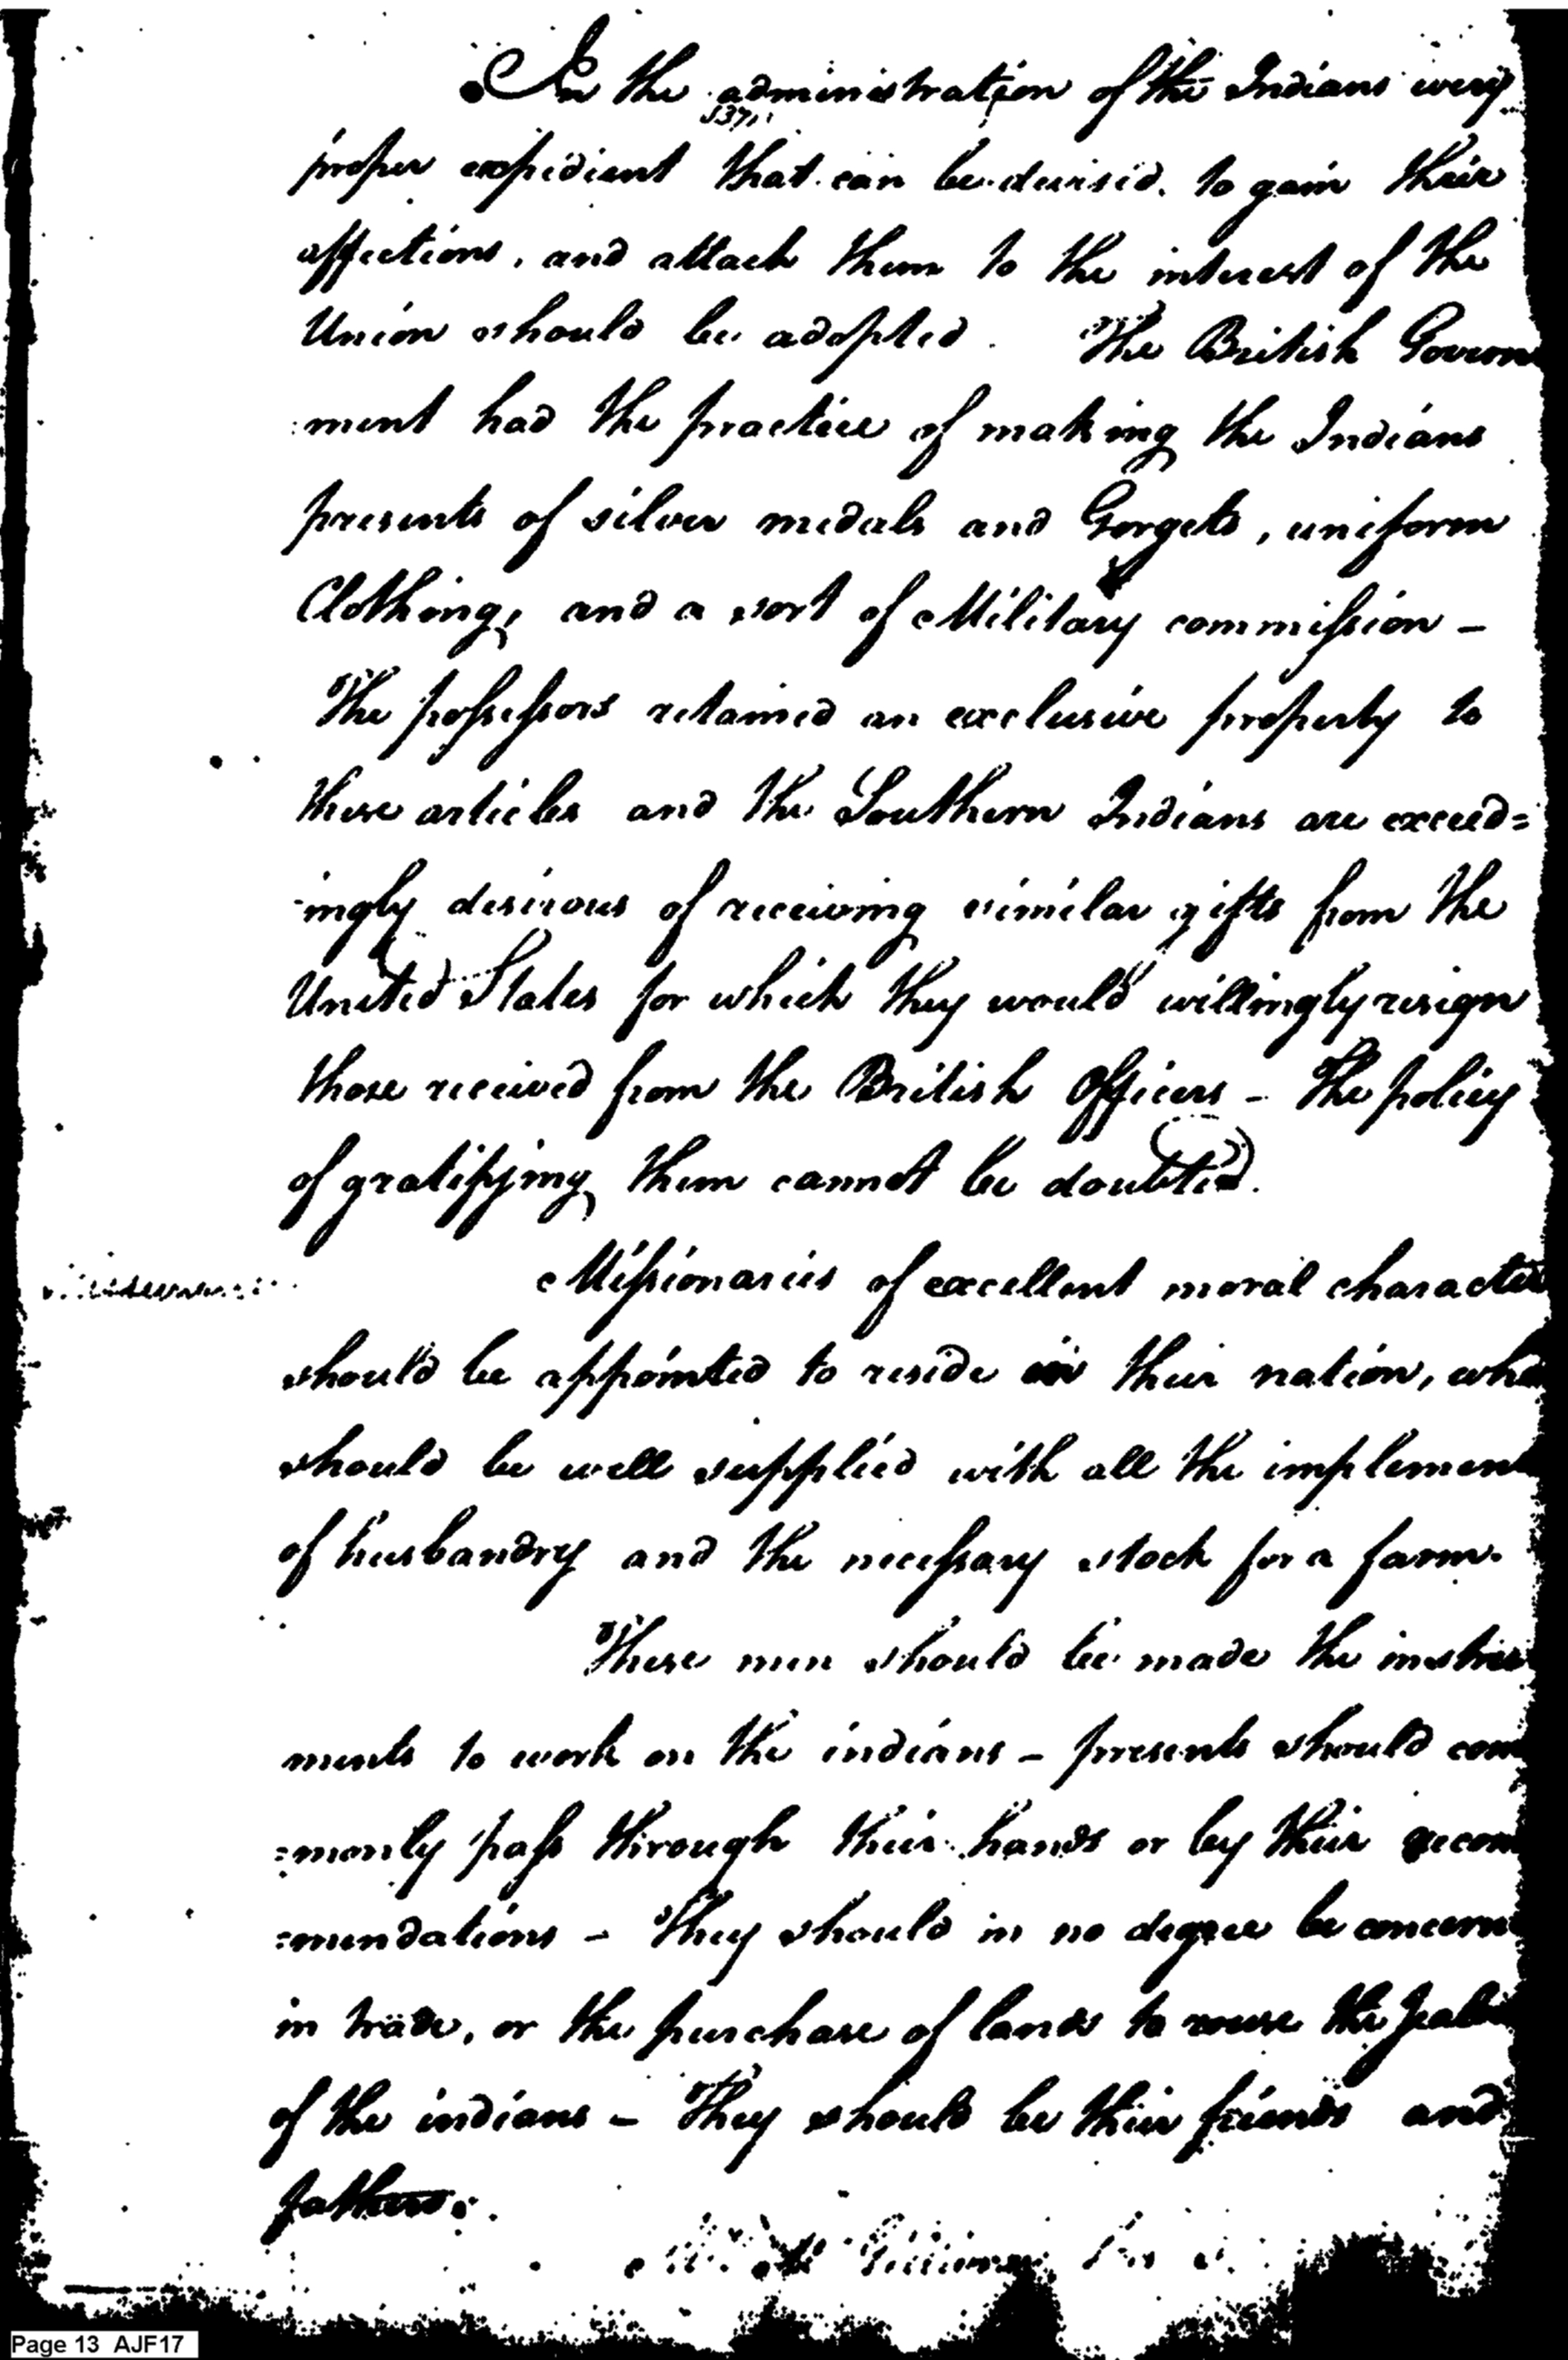 In the administration of the Indians every
proper expedient that can be devised to gain their
affections, and attach them to the interest of the
Union should be adopted. The British Govern
ment had the practice of making the Indians
presents of silver medals and Gorgets, uniform
Clothing, and a sort of Military commission –
The possessors retained an exclusive property to
these articles and the Southern Indians are exceed=
ingly desirous of receiving similar gifts from the
United States for which they would willingly resign
those received from the British Officers – The policy
of gratifying them cannot be doubted.
Missionaries of excellent moral character
should be appointed to reside in their nation, who
should be well supplied with all the implemen
of husbandry and the necessary stock for a farm.
These men should be made the instru
ments to work on the indians – presents should com
=monly pass through their hands or by their recom
=mendations – They should in no degree be concern
in trade, or the purchase of lands to rouse the Jealou
of the indians – They should be their friends and
fathers.
Page 13 AJF17